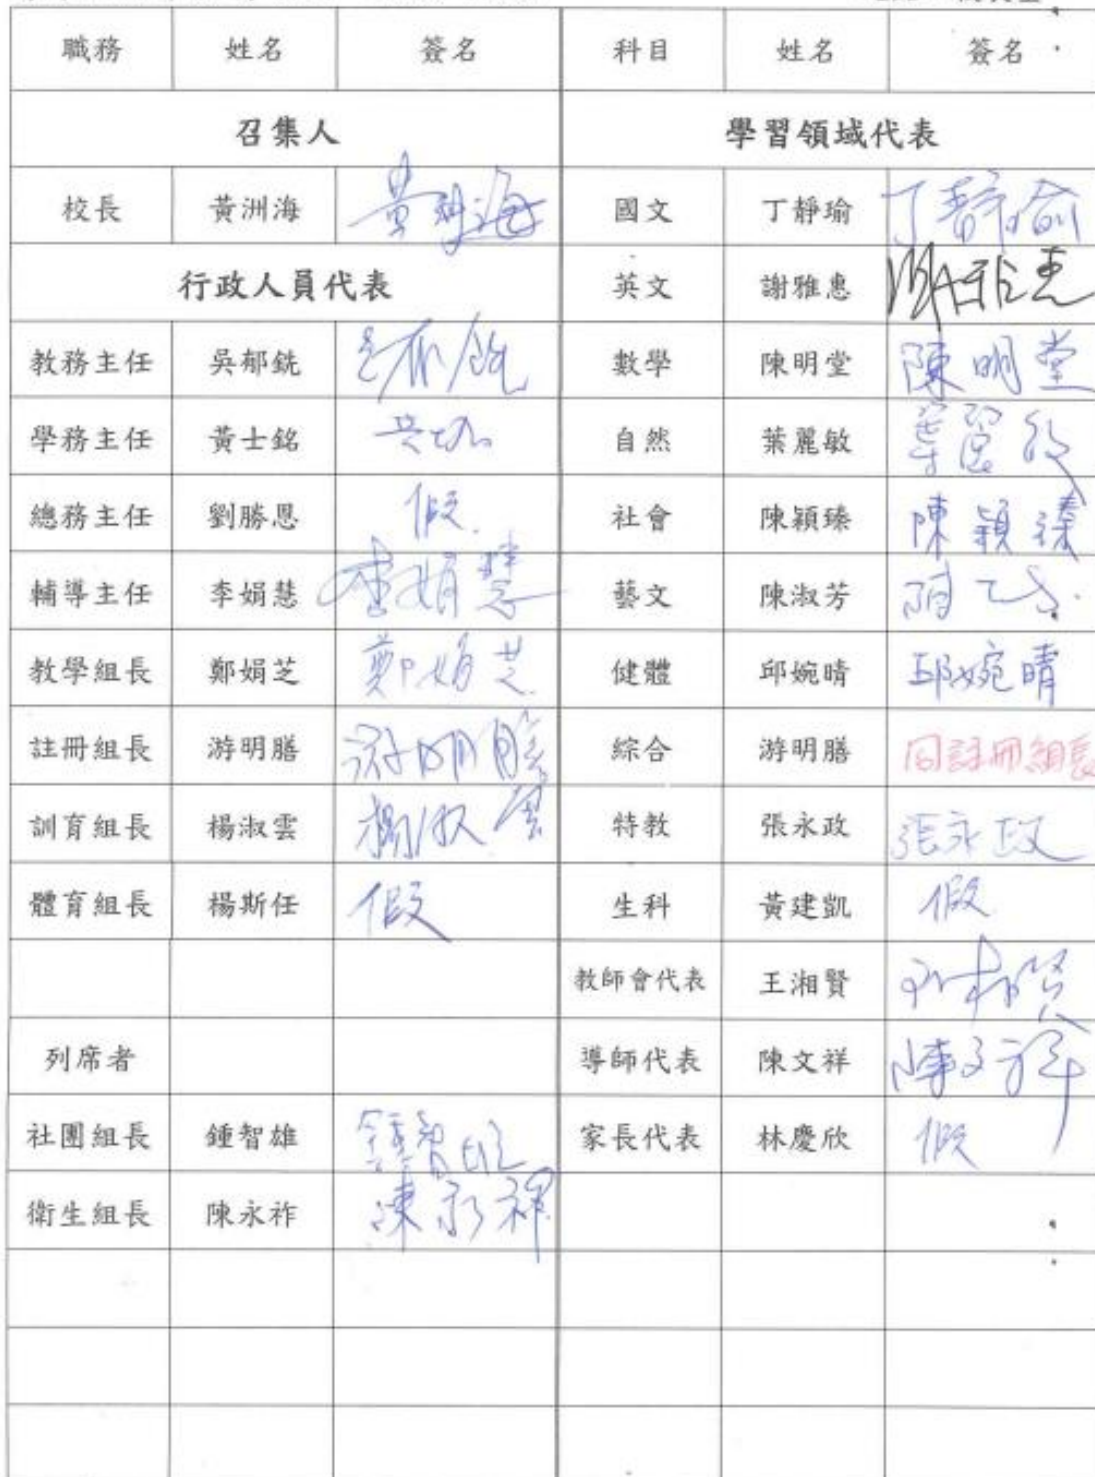 職務 姓名 簽名 科目 姓名 簽名
召集人 學習領域代表
校長 黃洲海 黃洲海 國文 丁靜瑜 丁靜瑜
行政人員代表 英文 謝雅惠 謝雅惠
教務主任 吳郁銑 吳郁銑 數學 陳明堂 陳明堂
學務主任 黃士銘 自然 葉麗敏 葉麗敏
總務主任 劉勝恩 假. 社會 陳穎臻 陳穎臻
輔導主任 李娟慧 李娟慧 藝文 陳淑芳
教學組長 鄭娟芝 鄭娟芝 健體 邱婉晴 邱婉晴
註冊組長 游明膳 游明膳 綜合 游明膳 同註冊組長
訓育組長 楊淑雲 楊淑雲 特教 張永政 張永政
體育組長 楊斯任 假 生科 黃建凱 假
教師會代表 王湘賢 王湘賢
列席者 導師代表 陳文祥 陳文祥
社團組長 鍾智雄 鍾智雄 家長代表 林慶欣 假
衛生組長 陳永祚 陳永祚